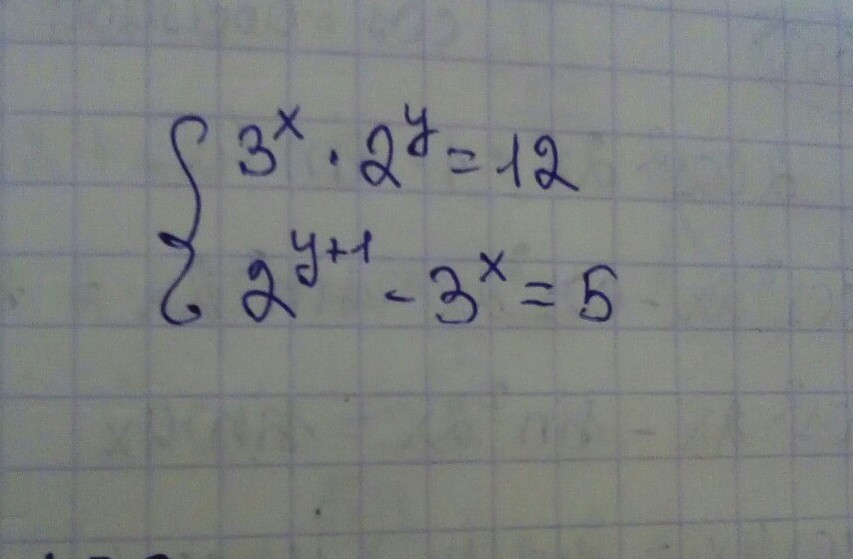 3ˣ · 2ʸ = 12
2ʸ⁺¹ - 3ˣ = 5